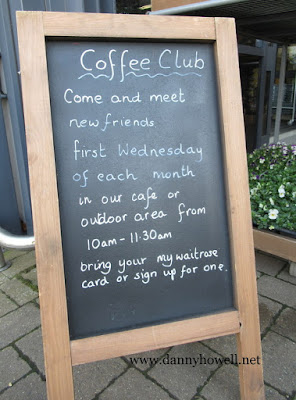 Coffee Club
Come and meet
new friends
first Wednesday
of each month
in our cafe or
outdoor area from
10am - 11.30am
bring your my waitrose
card or sign up for one.
www.dannyhowell.net